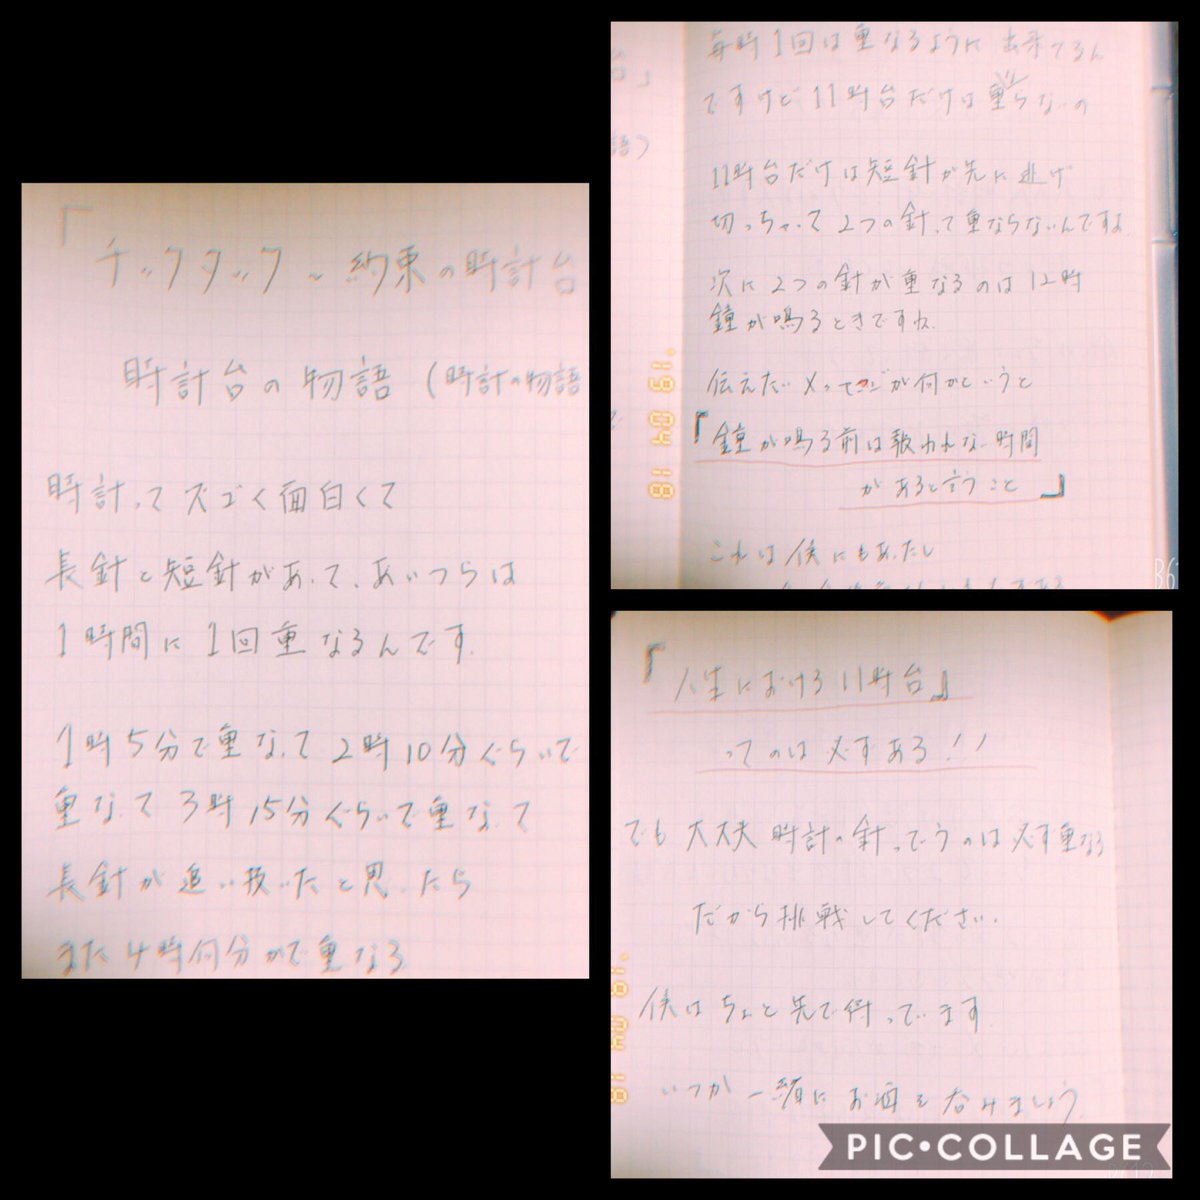 「チックタック～約束の時計台
時計台の物語（時計の物語
時計ってズゴく面白くて
長針と短針があって、あいつらは
1時間に1回重なるんです。
1時5分で重なって2時10分ぐらいで
重なって3時15分ぐらいで重なって
長針が追い抜いたと思ったら
また4時何分かで重なる
毎時1回は重なるように出来てるん
ですけど11時台だけは重らないの
11時台だけは短針が先に逃げ
切っちゃって2つの針って重ならないんですよ
次に2つの針が重なるのは12時
鐘が鳴るときですね。
伝えたいメッセージが何かというと
『鐘が鳴る前は報われない時間
があると言うこと』
これは僕にもあったし
'19 04 18
『人生における11時台』
ってのは必ずある!!
でも大丈夫時計の針ってうのは必ず重なる
だから挑戦してください。
僕はちょと先で待ってます
いつか一緒にお酒を呑みましょう
'19 04 18
PIC•COLLAGE